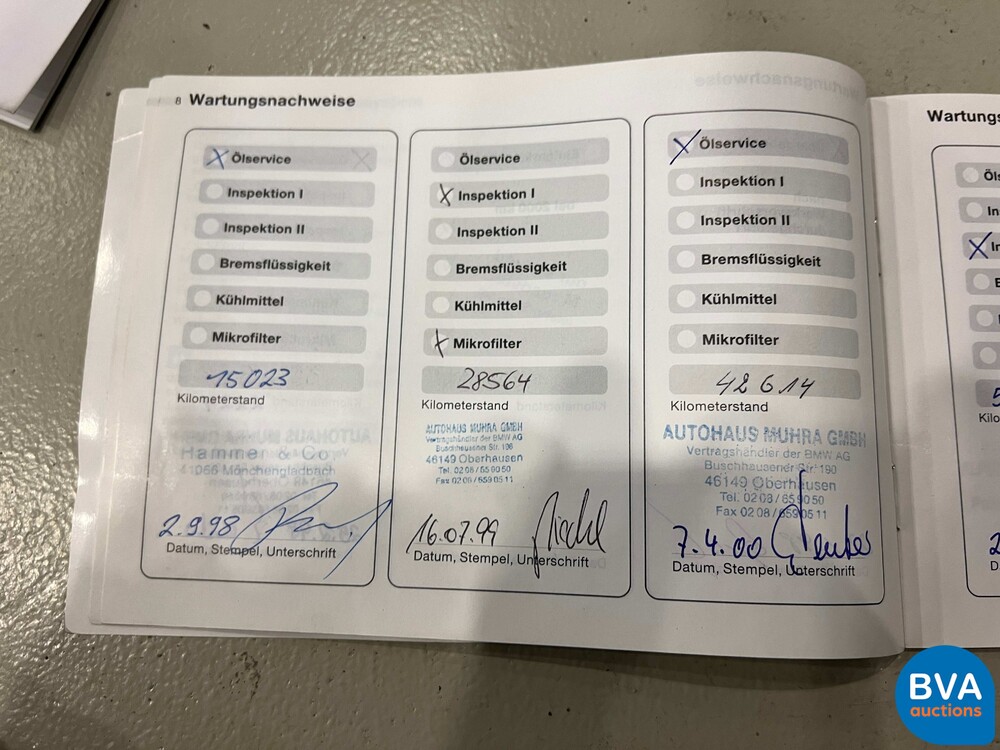 8 Wartungsnachweise
X Ölservice
Inspektion I
Inspektion II
Bremsflüssigkeit
Kühlmittel
Mikrofilter
15023
Kilometerstand
Hammer & Co
41066 Mönchengladbach
2.9.98
Datum, Stempel, Unterschrift
Ölservice
X Inspektion I
Inspektion II
Bremsflüssigkeit
Kühlmittel
X Mikrofilter
28564
Kilometerstand
AUTOHAUS MUHRA GMBH
Vertragshändler der BMW AG
Buschhausener Str. 196
46149 Oberhausen
Tel. 02 08 / 65 90 50
Fax 02 08 / 659 05 11
16.07.99
Datum, Stempel, Unterschrift
X Ölservice
Inspektion I
Inspektion II
Bremsflüssigkeit
Kühlmittel
Mikrofilter
42614
Kilometerstand
AUTOHAUS MUHRA GMBH
Vertragshändler der BMW AG
Buschhausener Str.
46149 Oberhausen
Tel. 02 08 / 65 90 50
Fax 02 08 / 659 05 11
7.4.00
Datum, Stempel, Unterschrift
Wartungs
Öls
In
X In
Kilo
BVA
auctions